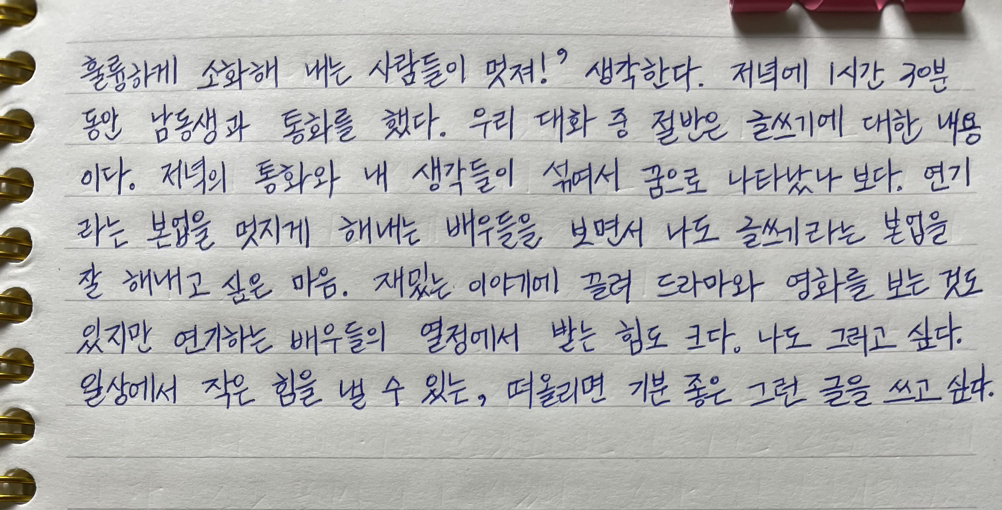 훌륭하게 소화해 내는 사람들이 멋져!’ 생각한다. 저녁에 1시간 30분
동안 남동생과 통화를 했다. 우리 대화 중 절반은 글쓰기에 대한 내용
이다. 저녁의 통화와 내 생각들이 섞여서 꿈으로 나타났나 보다. 연기
라는 본업을 멋지게 해내는 배우들을 보면서 나도 글쓰기라는 본업을
잘 해내고 싶은 마음. 재밌는 이야기에 끌려 드라마와 영화를 보는 것도
있지만 연기하는 배우들의 열정에서 받는 힘도 크다. 나도 그러고 싶다.
일상에서 작은 힘을 낼 수 있는, 떠올리면 기분 좋은 그런 글을 쓰고 싶다.